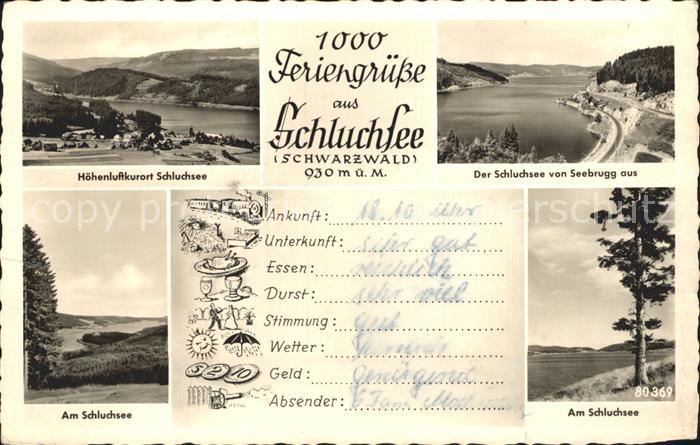 1000
Feriengrüße
aus
Schluchsee
(SCHWARZWALD)
930 m ü. M.
Höhenluftkurort Schluchsee
Der Schluchsee von Seebrugg aus
Ankunft: 18.10 Uhr
Unterkunft: sehr gut
Essen: reichlich
Durst: sehr viel
Stimmung: gut
Wetter:
Geld: genügend
Absender:
5 2 10
Am Schluchsee
Am Schluchsee
80369